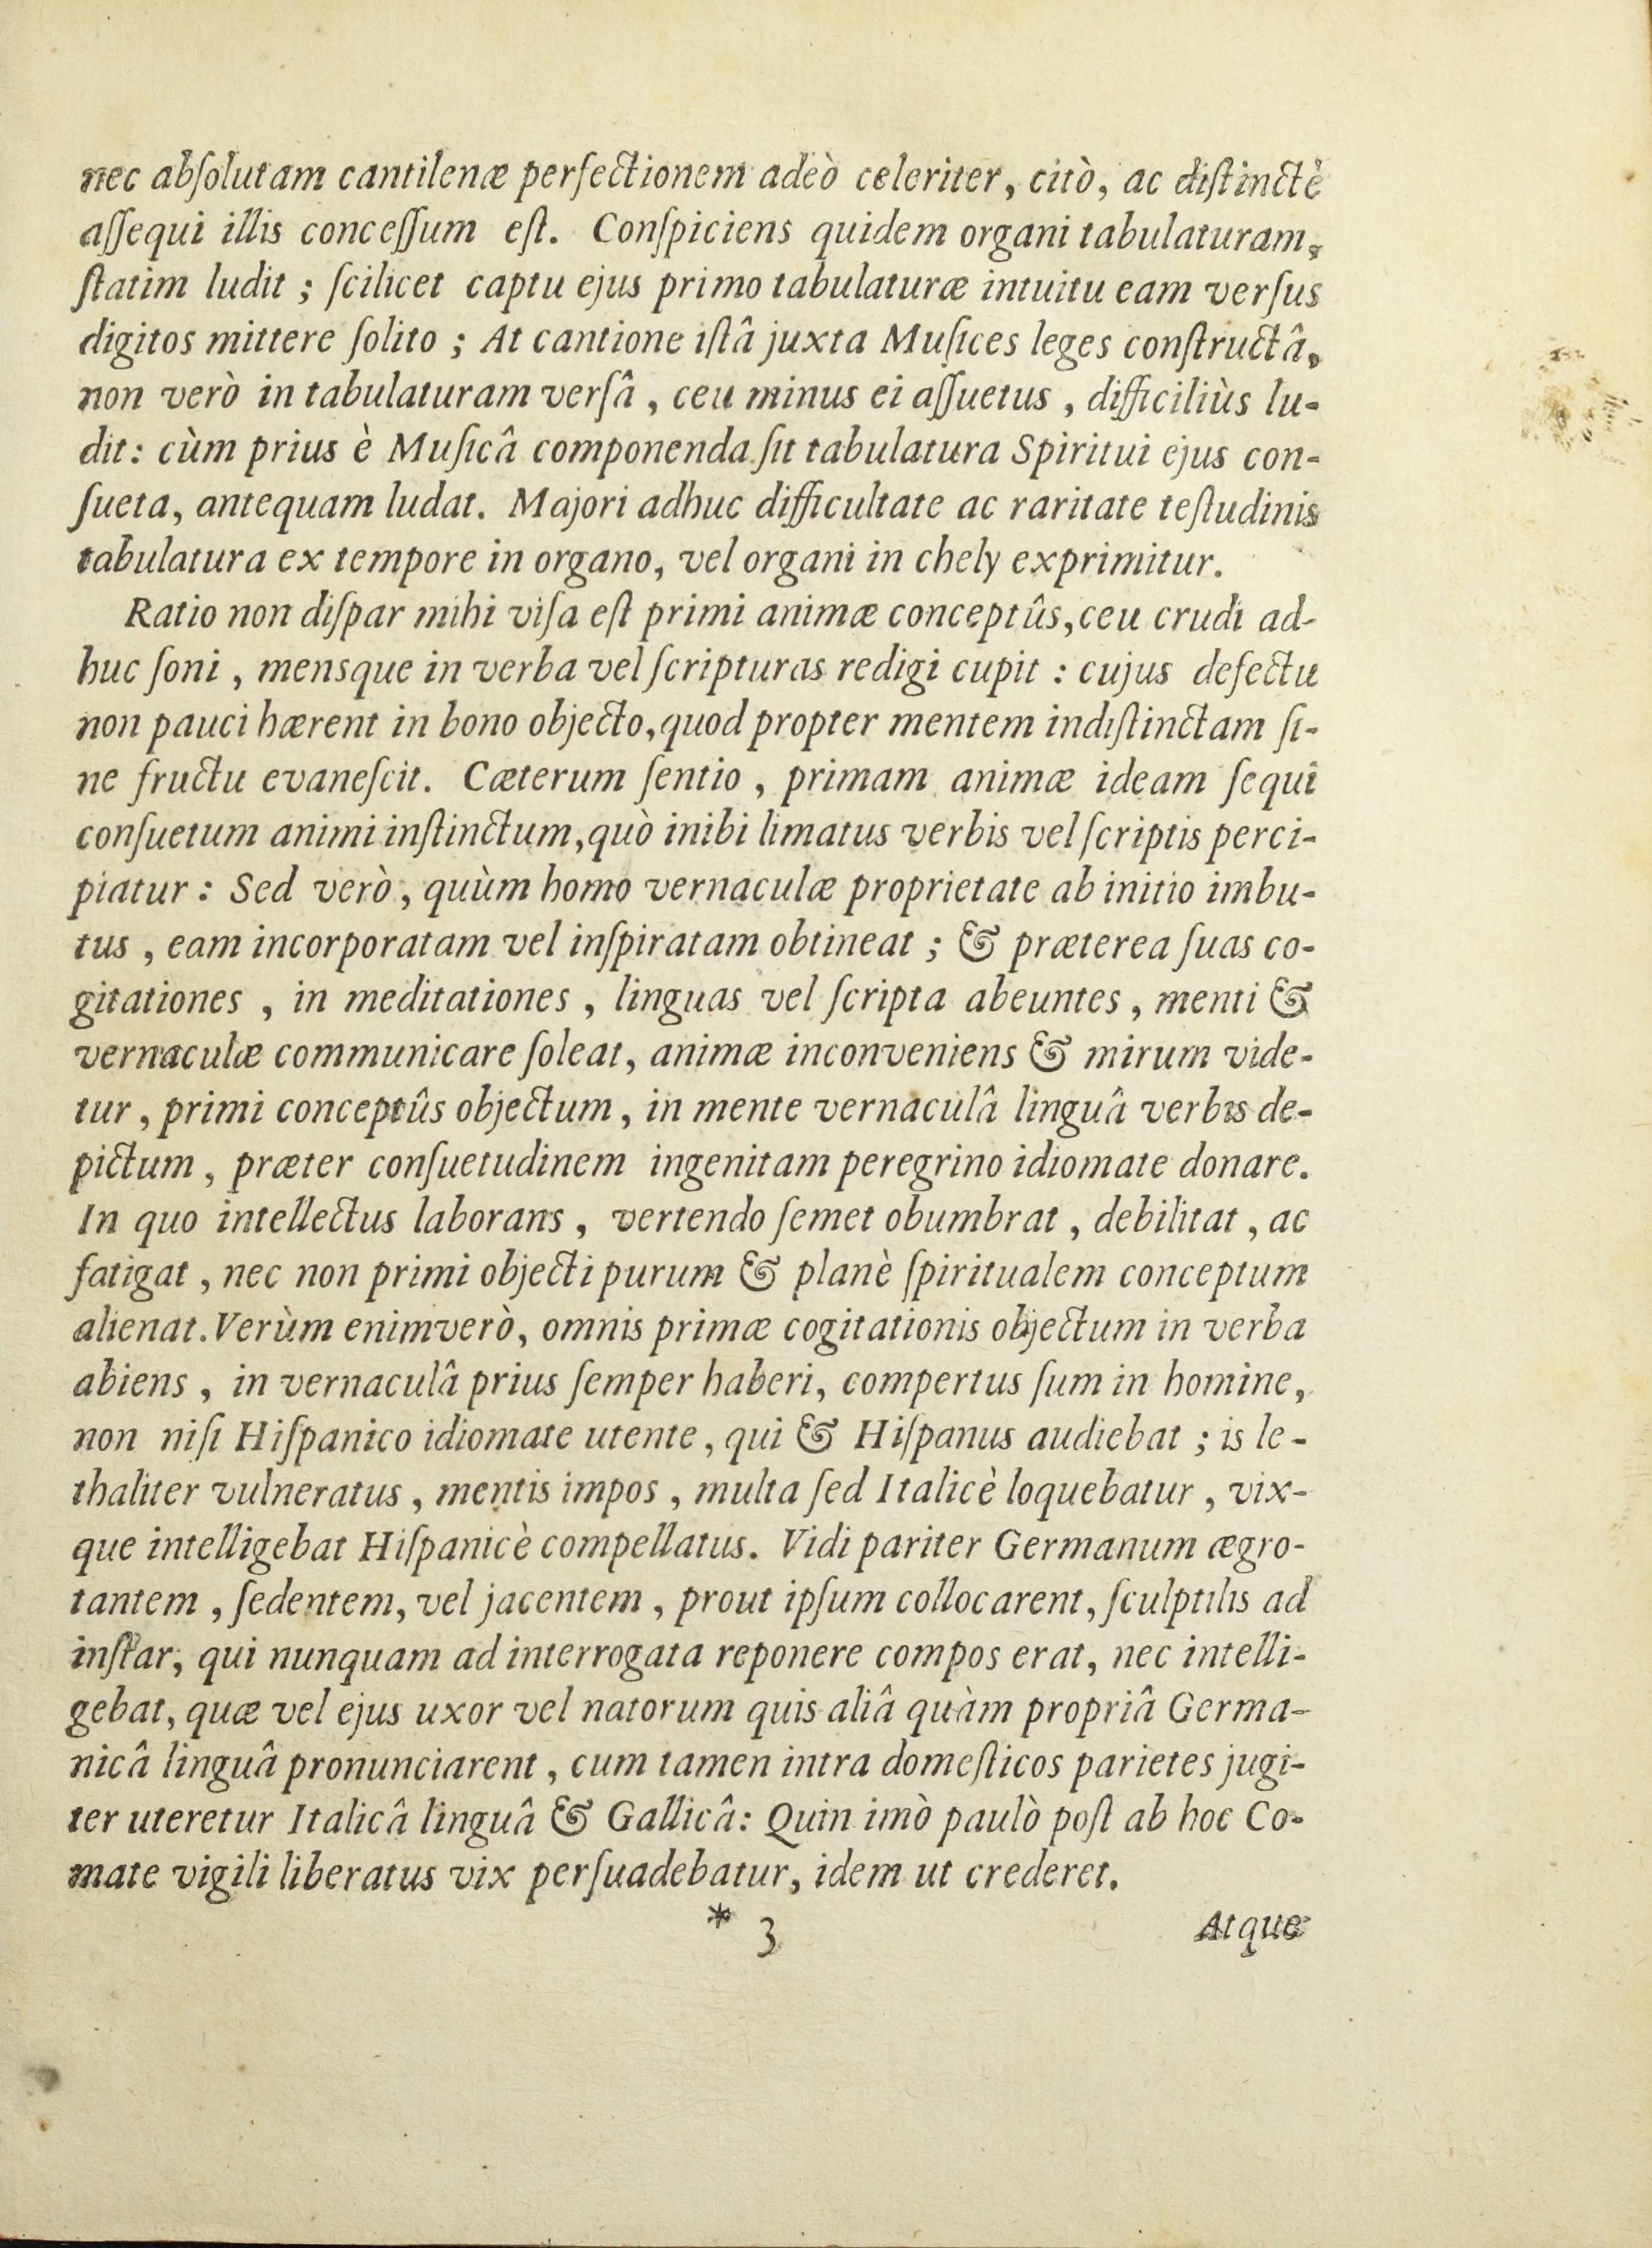 nec abſolutam cantilenæ perfectionem adeò celeriter, citò, ac diſtinctè
aſſequi illis conceſſum eſt. Conſpiciens quidem organi tabulaturam,
ſtatim ludit ; ſcilicet captu ejus primo tabulaturæ intuitu eam verſus
digitos mittere ſolito ; At cantione iſtâ juxta Muſices leges conſtructâ,
non verò in tabulaturam verſâ , ceu minus ei aſſuetus , difficiliùs lu-
dit: cùm prius è Muſicâ componenda ſit tabulatura Spiritui ejus con-
ſueta, antequam ludat. Majori adhuc difficultate ac raritate teſtudinis
tabulatura ex tempore in organo, vel organi in chely exprimitur.
Ratio non diſpar mihi viſa eſt primi animæ conceptûs, ceu crudi ad-
huc ſoni , mensque in verba vel ſcripturas redigi cupit : cujus defectu
non pauci hærent in bono objecto, quod propter mentem indiſtinctam ſi-
ne fructu evaneſcit. Cæterum ſentio , primam animæ ideam ſequi
conſuetum animi inſtinctum, quò inibi limatus verbis vel ſcriptis perci-
piatur : Sed verò , quùm homo vernaculæ proprietate ab initio imbu-
tus , eam incorporatam vel inſpiratam obtineat ; & præterea ſuas co-
gitationes , in meditationes , linguas vel ſcripta abeuntes , menti &
vernaculæ communicare ſoleat, animæ inconveniens & mirum vide-
tur , primi conceptûs objectum , in mente vernaculâ linguâ verbis de-
pictum , præter conſuetudinem ingenitam peregrino idiomate donare.
In quo intellectus laborans , vertendo ſemet obumbrat , debilitat , ac
fatigat , nec non primi objecti purum & planè ſpiritualem conceptum
alienat. Verùm enimverò, omnis primæ cogitationis objectum in verba
abiens , in vernaculâ prius ſemper haberi, compertus ſum in homine,
non niſi Hiſpanico idiomate utente , qui & Hiſpanus audiebat ; is le-
thaliter vulneratus , mentis impos , multa ſed Italicè loquebatur , vix-
que intelligebat Hiſpanicè compellatus. Vidi pariter Germanum ægro-
tantem , ſedentem, vel jacentem , prout ipſum collocarent, ſculptilis ad
inſtar, qui nunquam ad interrogata reponere compos erat, nec intelli-
gebat, quæ vel ejus uxor vel natorum quis aliâ quàm propriâ Germa-
nicâ linguâ pronunciarent , cum tamen intra domeſticos parietes jugi-
ter uteretur Italicâ linguâ & Gallicâ: Quin imò paulò poſt ab hoc Co-
mate vigili liberatus vix perſuadebatur, idem ut crederet.
* 3 Atque